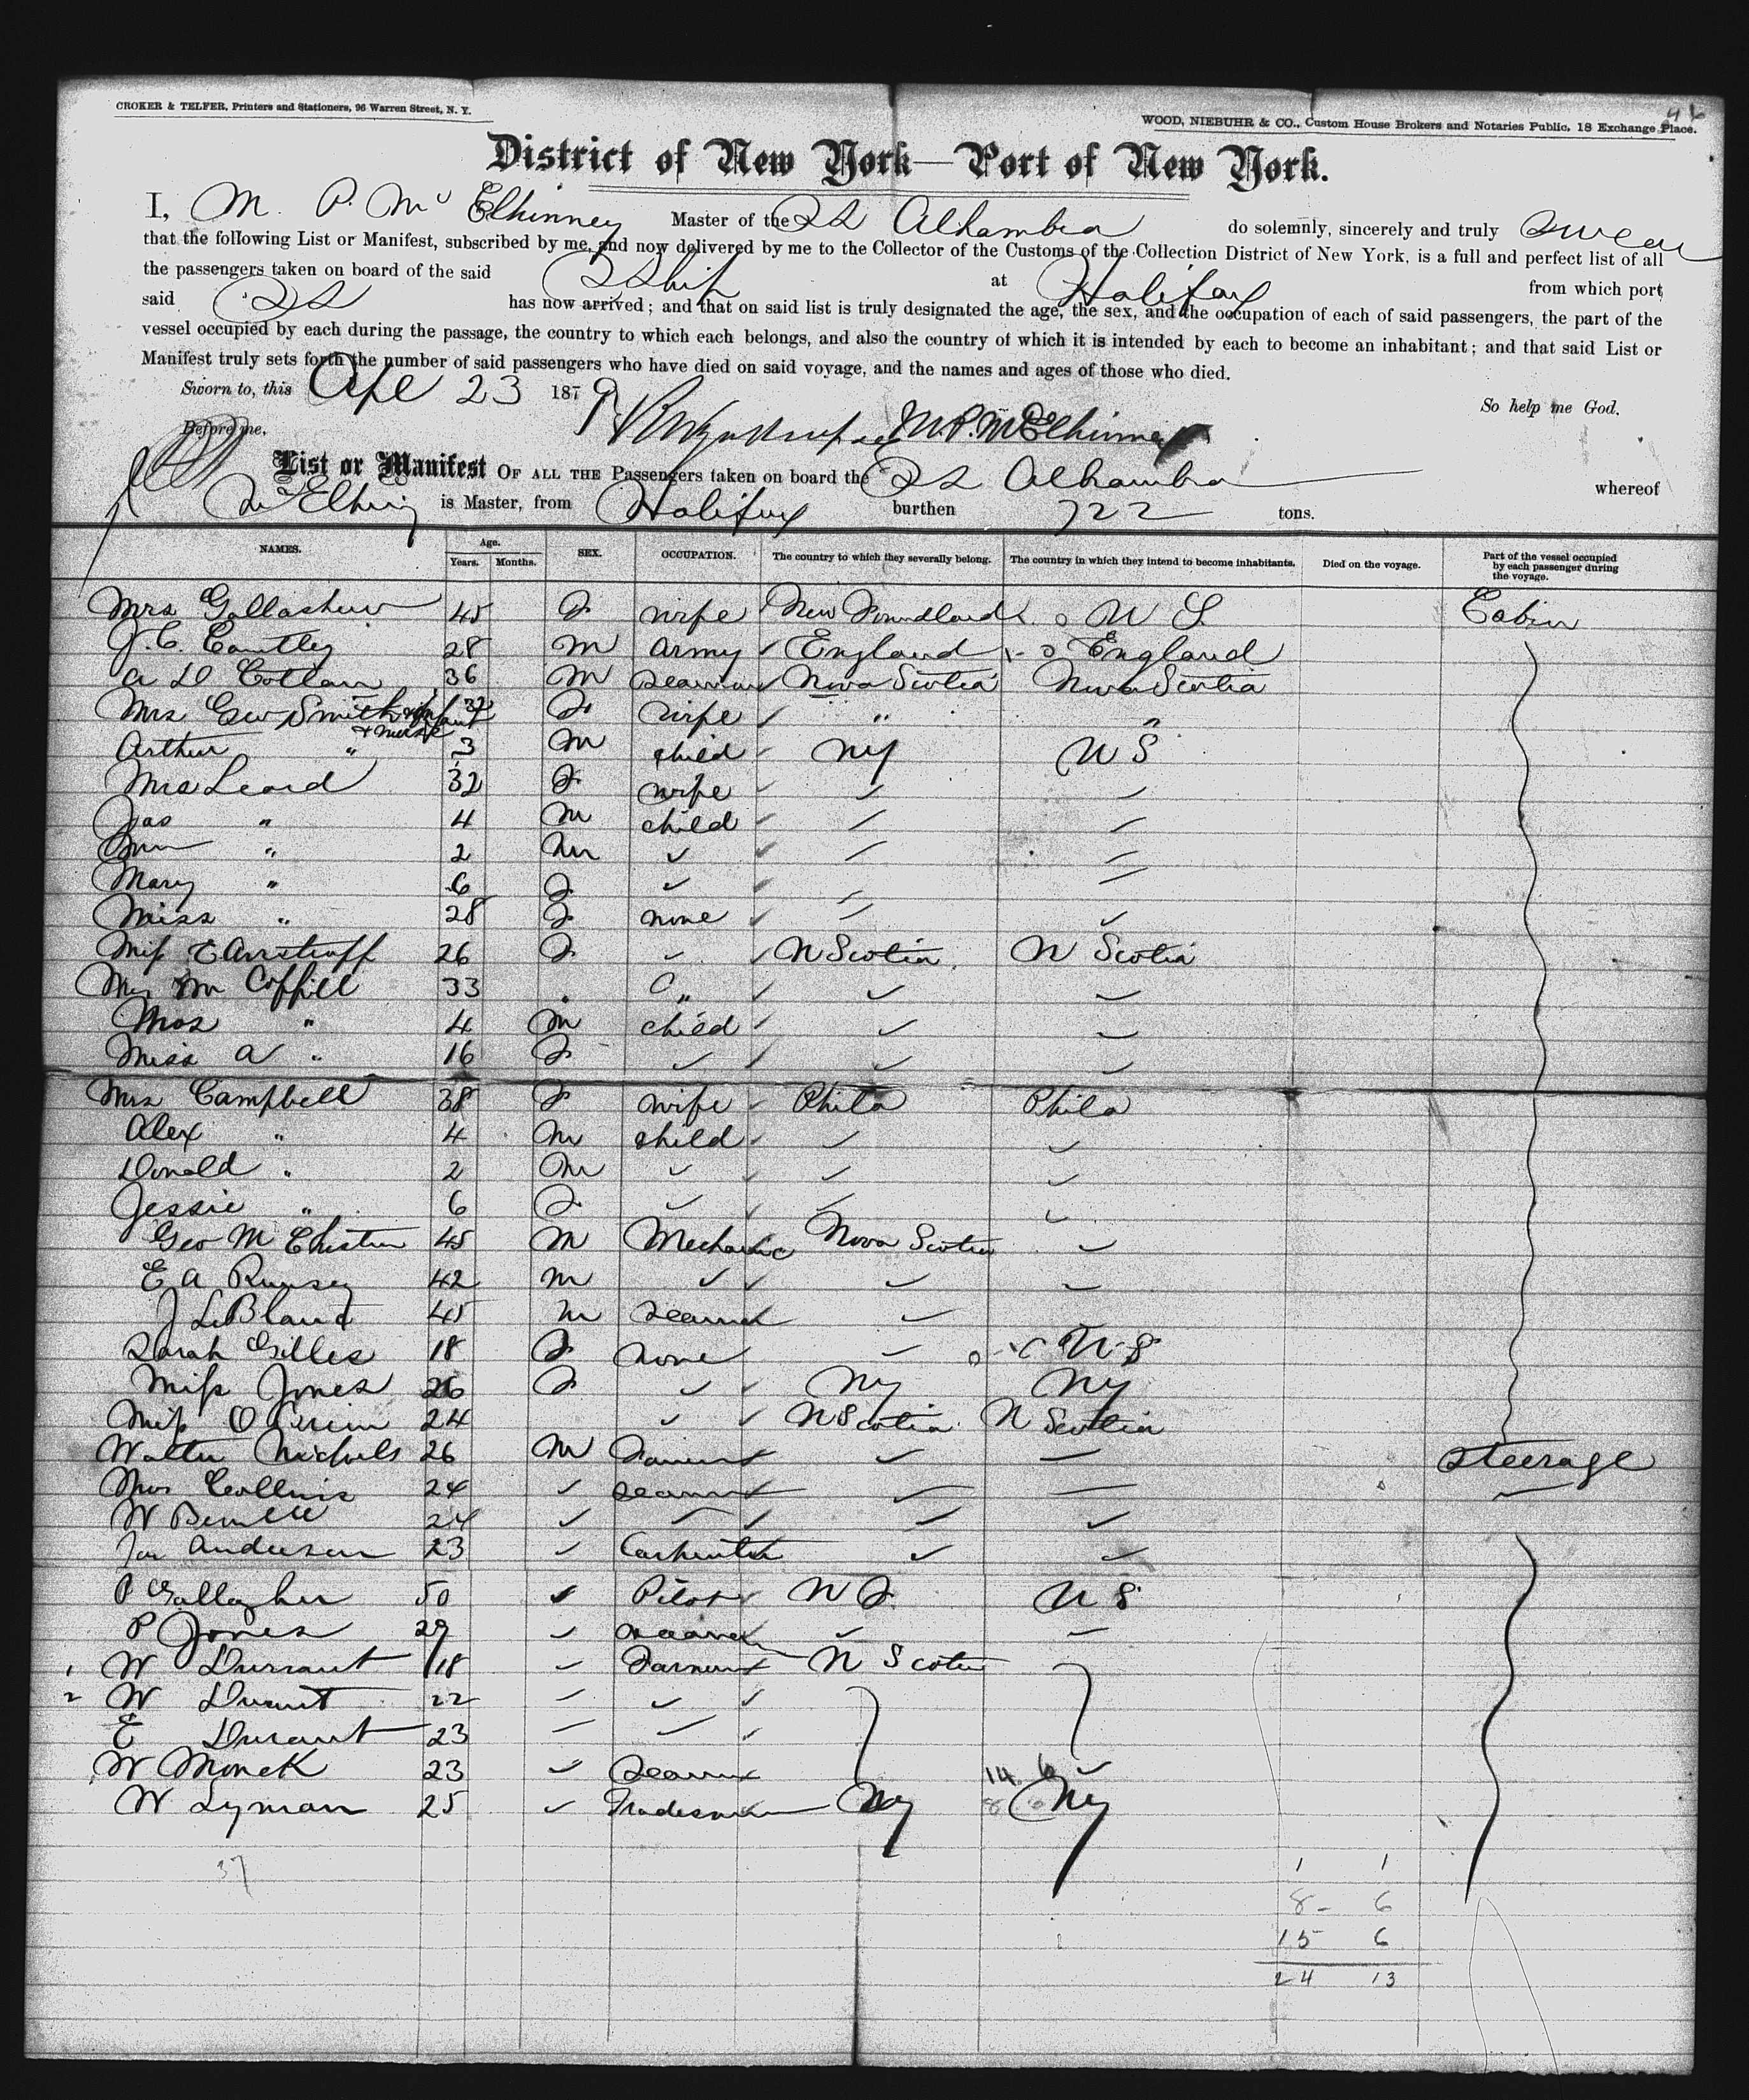 46
CROKER & TELFER, Printers and Stationers, 96 Warren Street, N. Y.
WOOD, NIEBUHR & CO., Custom House Brokers and Notaries Public, 18 Exchange Place.
District of New York—Port of New York.
I, M. P. Mc Elhinney Master of the SS Alhambra do solemnly, sincerely and truly swear
that the following List or Manifest, subscribed by me, and now delivered by me to the Collector of the Customs of the Collection District of New York, is a full and perfect list of all
the passengers taken on board of the said SShip at Halifax from which port
said SS has now arrived; and that on said list is truly designated the age, the sex, and the occupation of each of said passengers, the part of the
vessel occupied by each during the passage, the country to which each belongs, and also the country of which it is intended by each to become an inhabitant; and that said List or
Manifest truly sets forth the number of said passengers who have died on said voyage, and the names and ages of those who died.
Sworn to, this Apl 23 1879 So help me God.
Before me, M. P. McElhinney
List or Manifest OF ALL THE Passengers taken on board the SS Alhambra whereof
McElhiny is Master, from Halifax burthen 722 tons.
NAMES. Age. Years. Months. SEX. OCCUPATION. The country to which they severally belong. The country in which they intend to become inhabitants. Died on the voyage. Part of the vessel occupied by each passenger during the voyage.
Mrs 45 F wife New Foundland U S Cabin
J. C. Cantley 28 M Army England England
A D 36 M Seaman Nova Scotia Nova Scotia
Mrs Geo Smith & Infant & nurse 32 F wife " "
Arthur " 3 M child NY U S
Mrs Leard 32 F wife
Jas " 4 M child
" 2 M
Mary " 6 F
Miss " 28 F none
Miss E 26 F N Scotia N Scotia
Coffill 33 "
" 4 M child
Miss A " 16 F
Mrs Campbell 38 F wife Phila Phila
Alex " 4 M child
Donald " 2 M
Jessie " 6 F
Geo M 45 M Mechanic Nova Scotia
E A Rumsey 42 M
J LeBlanc 45 M Seaman
Sarah Gilles 18 F none U S
Miss Jones 26 F NY NY
Miss O 24 N Scotia N Scotia
Walter Nichols 26 M Farmer Steerage
Collins 24 Seaman
W 24
Anderson 23 Carpenter
P Gallagher 50 Pilot N F U S
P Jones 29 Seaman
1 W Durrant 18 Farmer N Scotia
2 W Durant 22
E Durant 23
W Monck 23 Seaman 14 6
W Lyman 25 Tradesman NY 8 6 NY
37
1 1
8 - 6
15 6
24 13